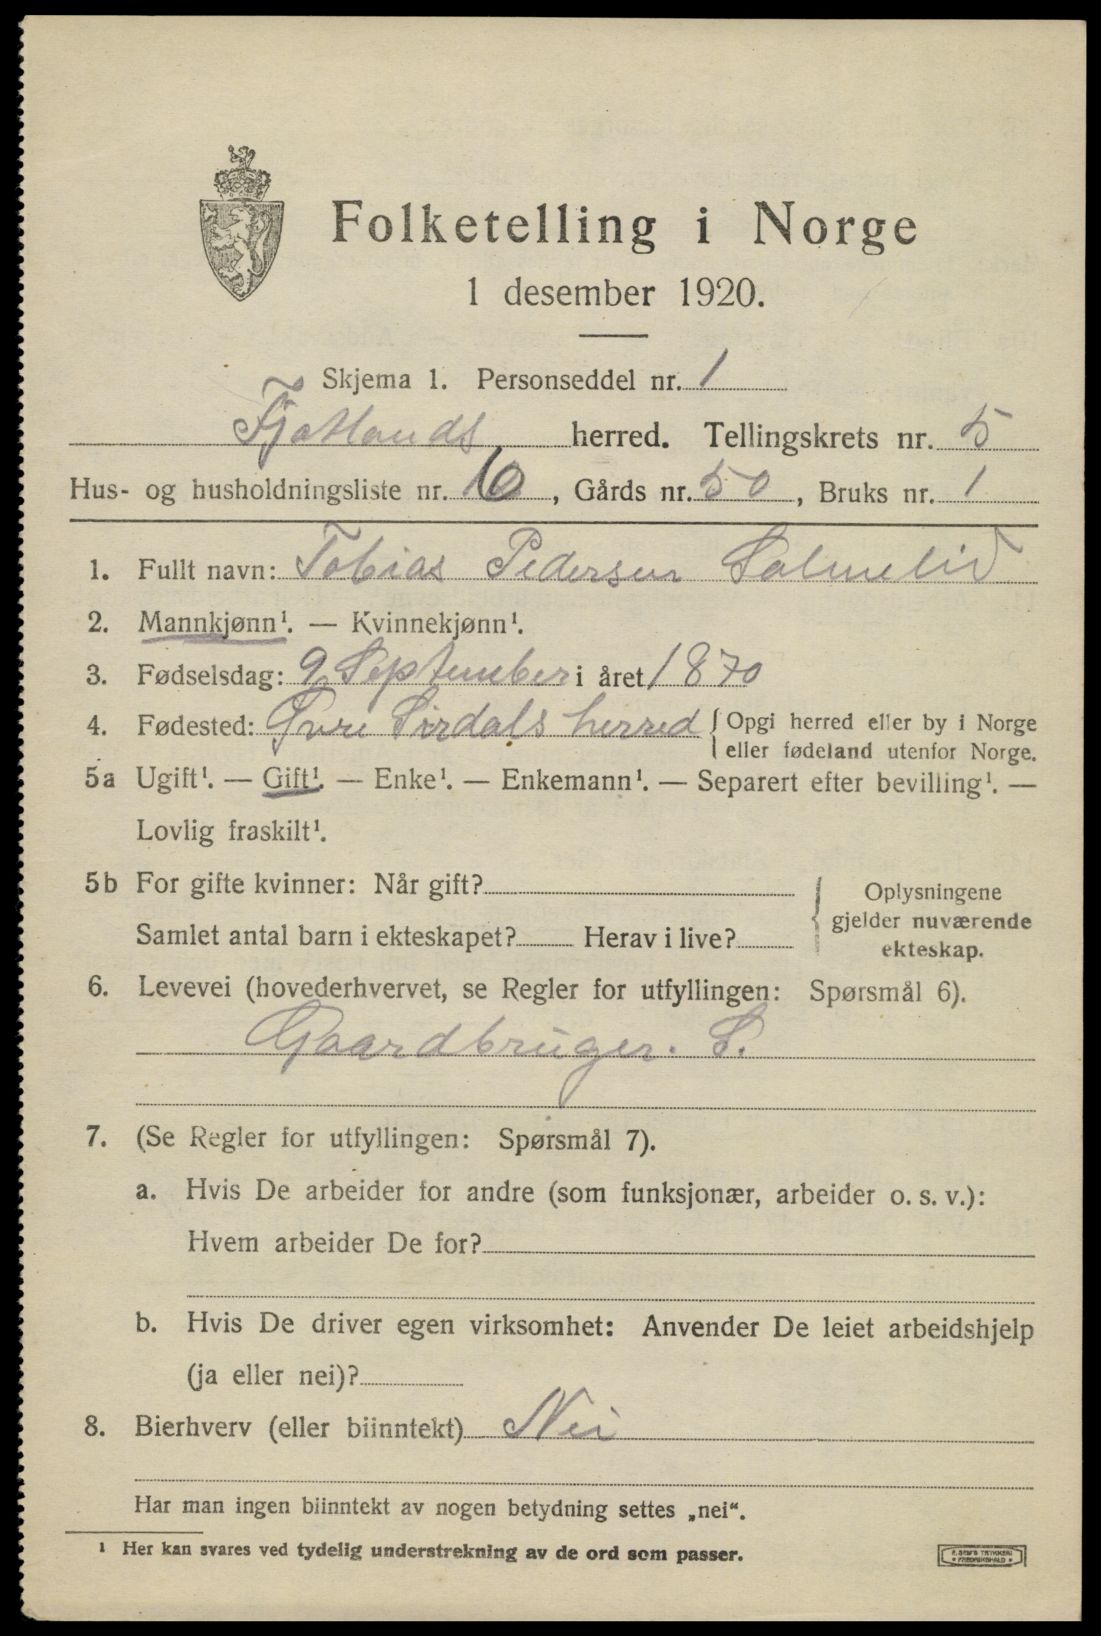 Folketelling i Norge
1 desember 1920.
Skjema 1. Personseddel nr. 1
Fjotlands herred. Tellingskrets nr. 5
Hus- og husholdningsliste nr. 6, Gårds nr. 50, Bruks nr. 1
1. Fullt navn: Tobias Pedersen Salmelid
2. Mannkjønn¹. — Kvinnekjønn¹.
3. Fødselsdag: 9 September i året 1870
4. Fødested: Øvre Sirdals herred { Opgi herred eller by i Norge
eller fødeland utenfor Norge.
5a Ugift¹. — Gift¹. — Enke¹. — Enkemann¹. — Separert efter bevilling¹. —
Lovlig fraskilt¹.
5b For gifte kvinner: Når gift?
Samlet antal barn i ekteskapet? Herav i live?
{ Oplysningene
gjelder nuværende
ekteskap.
6. Levevei (hovederhvervet, se Regler for utfyllingen: Spørsmål 6).
Gaardbruger. S.
7. (Se Regler for utfyllingen: Spørsmål 7).
a. Hvis De arbeider for andre (som funksjonær, arbeider o. s. v.):
Hvem arbeider De for?
b. Hvis De driver egen virksomhet: Anvender De leiet arbeidshjelp
(ja eller nei)?
8. Bierhverv (eller biinntekt) Nei
Har man ingen biinntekt av nogen betydning settes „nei“.
¹ Her kan svares ved tydelig understrekning av de ord som passer.